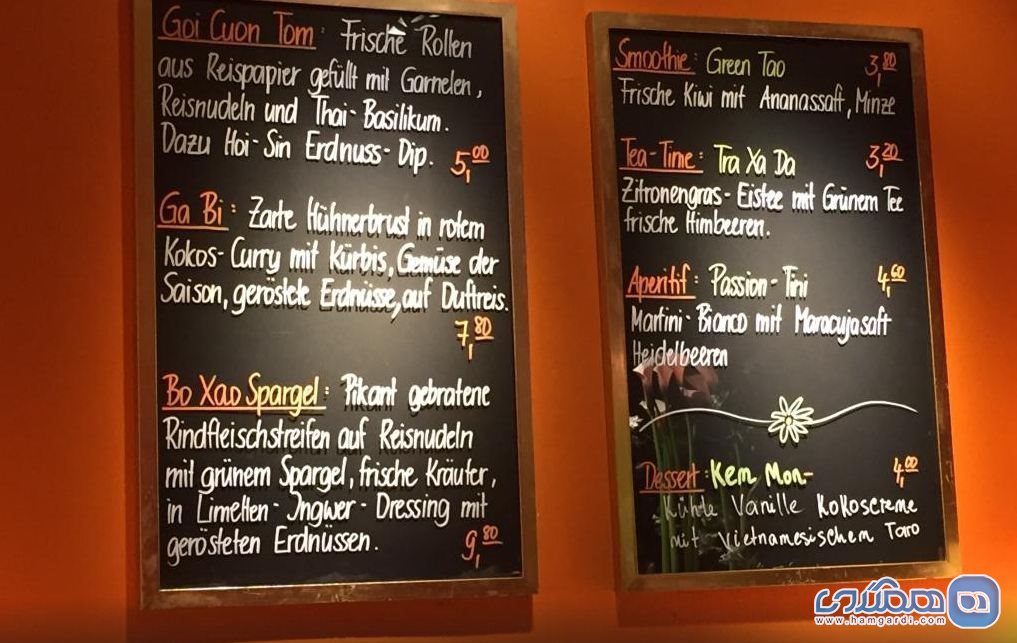 Goi Cuon Tom: Frische Rollen
aus Reispapier gefüllt mit Garnelen,
Reisnudeln und Thai-Basilikum.
Dazu Hoi-Sin Erdnuss-Dip. 5,00
Ga Bi: Zarte Hühnerbrust in rotem
Kokos-Curry mit Kürbis, Gemüse der
Saison, geröstete Erdnüsse, auf Duftreis.
7,80
Bo Xao Spargel: Pikant gebratene
Rindfleischstreifen auf Reisnudeln
mit grünem Spargel, frische Kräuter,
in Limetten-Ingwer-Dressing mit
gerösteten Erdnüssen. 9,80
Smoothie: Green Tao 3,80
Frische Kiwi mit Ananassaft, Minze
Tea-Time: Tra Xa Da 3,20
Zitronengras-Eistee mit Grünem Tee
frische Himbeeren.
Aperitif: Passion-Tini 4,60
Martini-Bianco mit Maracujasaft
Heidelbeeren
Dessert: Kem Mon- 4,00
Kühle Vanille Kokoscreme
mit vietnamesischem Taro
همگردی
www.hamgardi.com